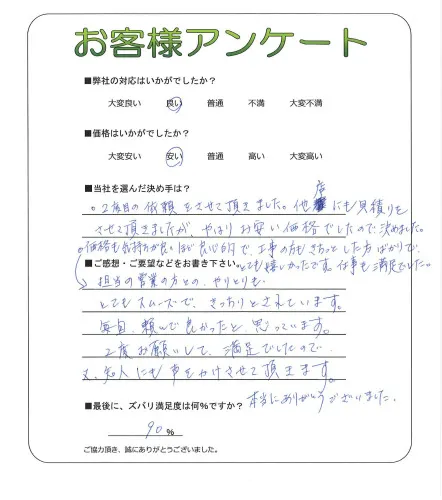 お客様アンケート
■弊社の対応はいかがでしたか？
大変良い 良い 普通 不満 大変不満
■価格はいかがでしたか？
大変安い 安い 普通 高い 大変高い
■当社を選んだ決め手は？
○2度目の依頼をさせて頂きました。他店にも見積りを
させて頂きましたが、やはりお安い価格でしたので決めました。
○価格も気持が良いほど良心的で、工事の方もきちっとした方ばかりで、
■ご感想・ご要望などをお書き下さい。とても嬉しかったです。仕事も満足でした。
担当の営業の方との、やりとりも、
とてもスムーズで、きっちりとされています。
毎回、頼んで良かったと思っています。
2度お願いして、満足でしたので
又、知人にも声をかけさせて頂きます。
■最後に、ズバリ満足度は何%ですか？ 本当にありがとうございました。
90 %
ご協力頂き、誠にありがとうございました。